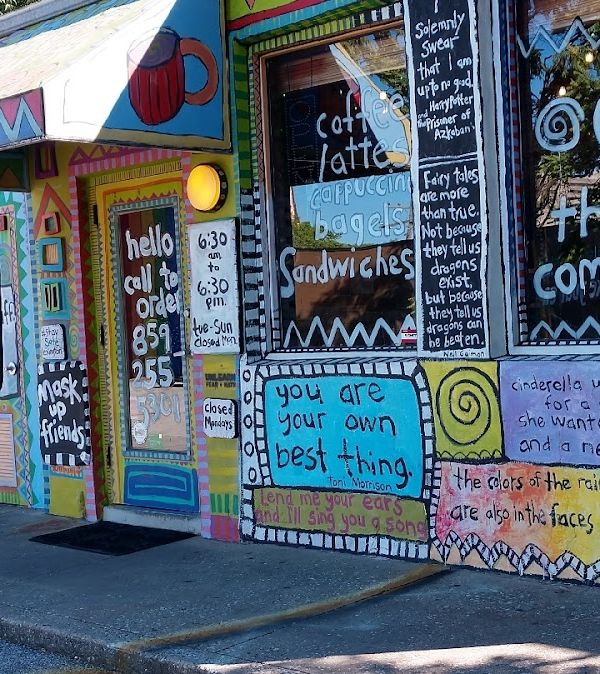 hello
call to
order
859
255
5301
6:30
am
to
6:30
pm.
tue-Sun
closed Mon.
closed
Mondays
Mask
up
friends
stay
safe
coffee
lattes
cappuccin
bagels
Sandwiches
I
Solemnly
Swear
that I am
up to no good.
Harry Potter
and the
Prisoner of
Azkaban
Fairy tales
are more
than true.
Not because
they tell us
dragons
exist,
but because
they tell us
dragons can
be beaten.
Neil Gaiman
th
com
you are
your own
best thing.
Toni Morrison
Lend me your ears
and I'll sing you a song
cinderella
for a
she want
and a
the colors of the rai
are also in the faces